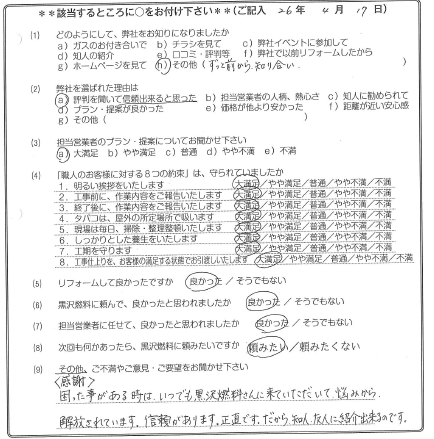 **該当するところに○をお付け下さい**(ご記入 26年 4月 17日)
(1) どのようにして、弊社をお知りになりましたか
a) ガスのお付き合いで b) チラシを見て c) 弊社イベントに参加して
d) 知人の紹介 e) 口コミ・評判等 f) 弊社で以前リフォームしたから
g) ホームページを見て h) その他 ( ずっと前から知り合い )
(2) 弊社を選ばれた理由は
a) 評判を聞いて信頼出来ると思った b) 担当営業者の人柄、熱心さ c) 知人に勧められて
d) プラン・提案が良かった e) 価格が他より安かった f) 距離が近い安心感
g) その他 ( )
(3) 担当営業者のプラン・提案についてお聞かせ下さい
a) 大満足 b) やや満足 c) 普通 d) やや不満 e) 不満
(4) 「職人のお客様に対する8つの約束」は、守られていましたか
1. 明るい挨拶をいたします 大満足/やや満足/普通/やや不満/不満
2. 工事前に、作業内容をご報告いたします 大満足/やや満足/普通/やや不満/不満
3. 終了後に、作業内容をご報告いたします 大満足/やや満足/普通/やや不満/不満
4. タバコは、屋外の所定場所で吸います 大満足/やや満足/普通/やや不満/不満
5. 現場は毎日、掃除・整理整頓いたします 大満足/やや満足/普通/やや不満/不満
6. しっかりとした養生をいたします 大満足/やや満足/普通/やや不満/不満
7. 工期を守ります 大満足/やや満足/普通/やや不満/不満
8. 工事仕上りを、お客様の満足する状態でお引渡しいたします 大満足/やや満足/普通/やや不満/不満
(5) リフォームして良かったですか 良かった / そうでもない
(6) 黒沢燃料に頼んで、良かったと思われましたか 良かった / そうでもない
(7) 担当営業者に任せて、良かったと思われましたか 良かった / そうでもない
(8) 次回も何かあったら、黒沢燃料に頼みたいですか 頼みたい/頼みたくない
(9) その他、ご不満やご意見・ご要望をお聞かせ下さい
〈感謝〉
困った事がある時は、いつでも黒沢燃料さんに来ていただいて悩みから
解放されています。信頼があります。正直です。だから知人、友人に紹介出来るのです。